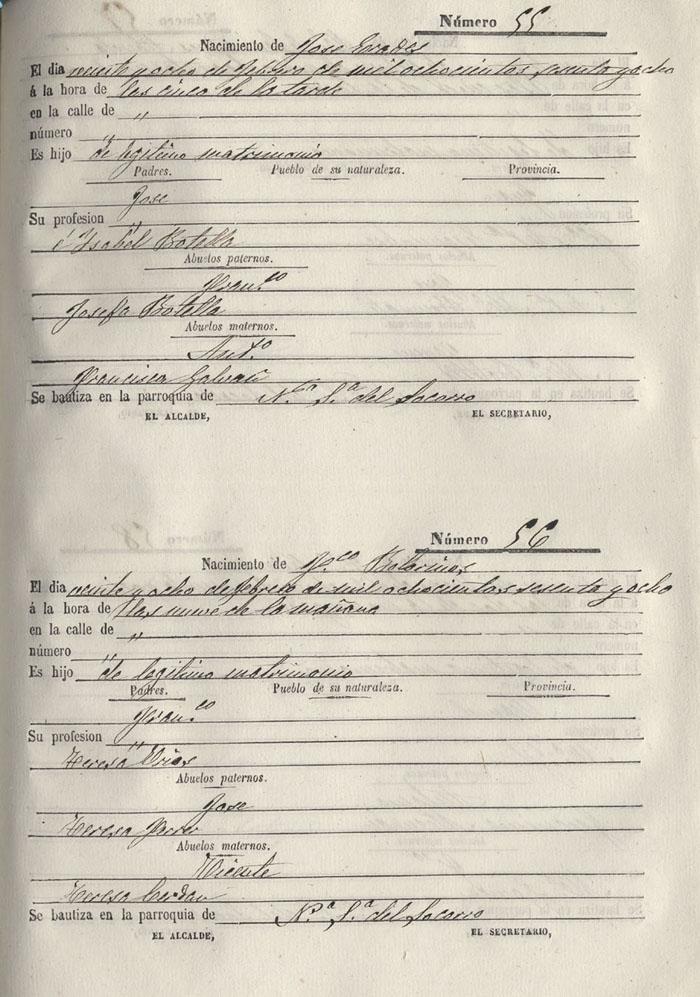 Número 55
Nacimiento de Jose
El dia veinte y ocho de febrero de mil ochocientos sesenta y ocho
á la hora de las cinco de la tarde
en la calle de "
número "
Es hijo de legitimo matrimonio
Padres. Pueblo de su naturaleza. Provincia.
Jose
Su profesion "
é Ysabel Botella
Abuelos paternos.
Fran.co
Josefa Botella
Abuelos maternos.
Ant.o
Francisca Galvañ
Se bautiza en la parroquia de N.a S.a del Socorro
EL ALCALDE, EL SECRETARIO,
Número 56
Nacimiento de
El dia veinte y ocho de febrero de mil ochocientos sesenta y ocho
á la hora de las nueve de la mañana
en la calle de "
número "
Es hijo de legitimo matrimonio
Padres. Pueblo de su naturaleza. Provincia.
Fran.co
Su profesion "
Teresa
Abuelos paternos.
Jose
Teresa Ferrer
Abuelos maternos.
Vicente
Teresa Cerdan
Se bautiza en la parroquia de N.a S.a del Socorro
EL ALCALDE, EL SECRETARIO,